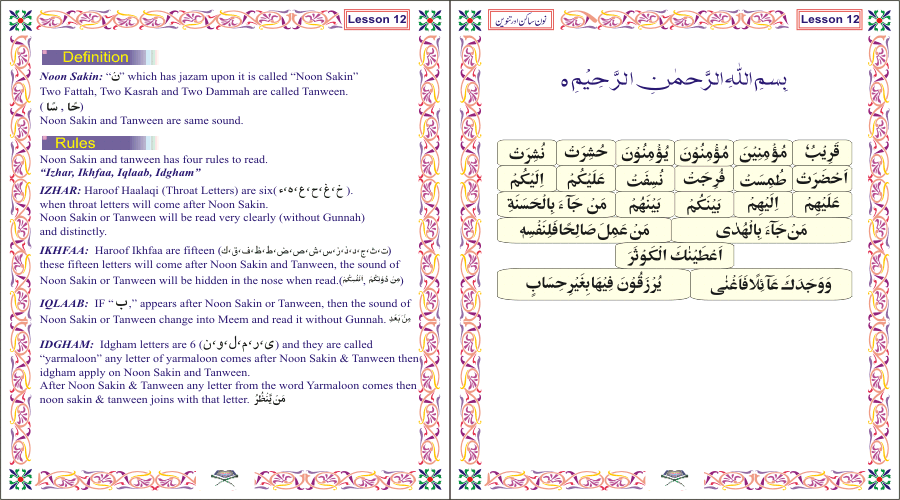 Lesson 12
Definition
Noon Sakin: “نْ” which has jazam upon it is called “Noon Sakin”
Two Fattah, Two Kasrah and Two Dammah are called Tanween.
( حًا , سًا )
Noon Sakin and Tanween are same sound.
Rules
Noon Sakin and tanween has four rules to read.
“Izhar, Ikhfaa, Iqlaab, Idgham”
IZHAR: Haroof Haalaqi (Throat Letters) are six( ء،ہ،ع،ح،غ،خ ).
when throat letters will come after Noon Sakin.
Noon Sakin or Tanween will be read very clearly (without Gunnah)
and distinctly.
IKHFAA: Haroof Ikhfaa are fifteen (ت،ث،ج،د،ذ،ز،س،ش،ص،ض،ط،ظ،ف،ق،ك)
these fifteen letters will come after Noon Sakin and Tanween, the sound of
Noon Sakin or Tanween will be hidden in the nose when read.(مَنْ دُوْنِكُمْ, اَنْفُسِكُمْ)
IQLAAB: IF “ ب,” appears after Noon Sakin or Tanween, then the sound of
Noon Sakin or Tanween change into Meem and read it without Gunnah. مِنْۢ بَعْدِ
IDGHAM: Idgham letters are 6 (ی،ر،م،ل،و،ن) and they are called
“yarmaloon” any letter of yarmaloon comes after Noon Sakin & Tanween then
idgham apply on Noon Sakin and Tanween.
After Noon Sakin & Tanween any letter from the word Yarmaloon comes then
noon sakin & tanween joins with that letter. مَنْ يَّنْظُرُ
نون ساکن اور تنوین
Lesson 12
بِسْمِ اللّٰهِ الرَّحْمٰنِ الرَّحِيْمِ ہ
قَرِيْبٌ مُؤْمِنِيْنَ مُؤْمِنُوْنَ يُؤْمِنُوْنَ حُشِرَتْ نُشِرَتْ
اَحْضَرَتْ طُمِسَتْ فُرِجَتْ نُسِفَتْ عَلَيْكُمْ اِلَيْكُمْ
عَلَيْهِمْ اِلَيْهِمْ بَيْنَكُمْ بَيْنَهُمْ مَنْ جَآءَ بِالْحَسَنَةِ
مَنْ جَآءَ بِالْهُدٰى مَنْ عَمِلَ صَالِحًا فَلِنَفْسِهٖ
اَعْطَيْنٰكَ الْكَوْثَرَ
وَوَجَدَكَ عَآئِلًا فَاَغْنٰى يُرْزَقُوْنَ فِيْهَا بِغَيْرِ حِسَابٍ